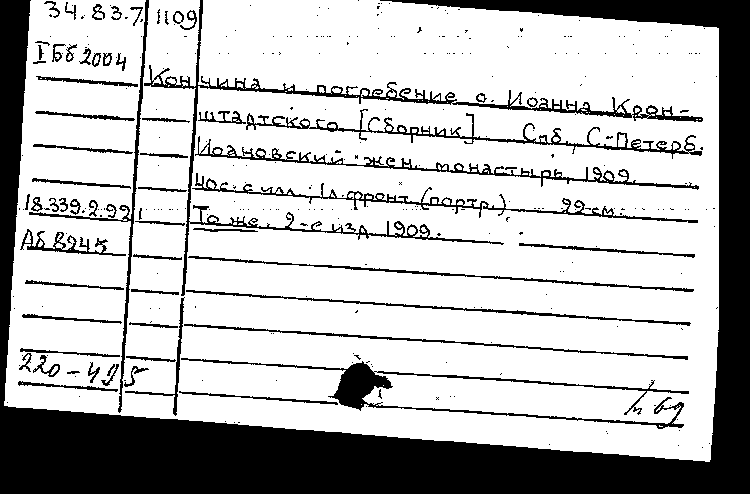 34.83.7 1109
I Бб 2004
Кончина и погребение о. Иоанна Крон-
штадтского [Сборник]. Спб., С.-Петерб.
Иоановский жен. монастырь, 1909.
40 с. с илл.; 1 л. фронт (портр.) 22 см.
18.339.2.92 1 То же. 2-е изд. 1909.
Аб 824
220-495